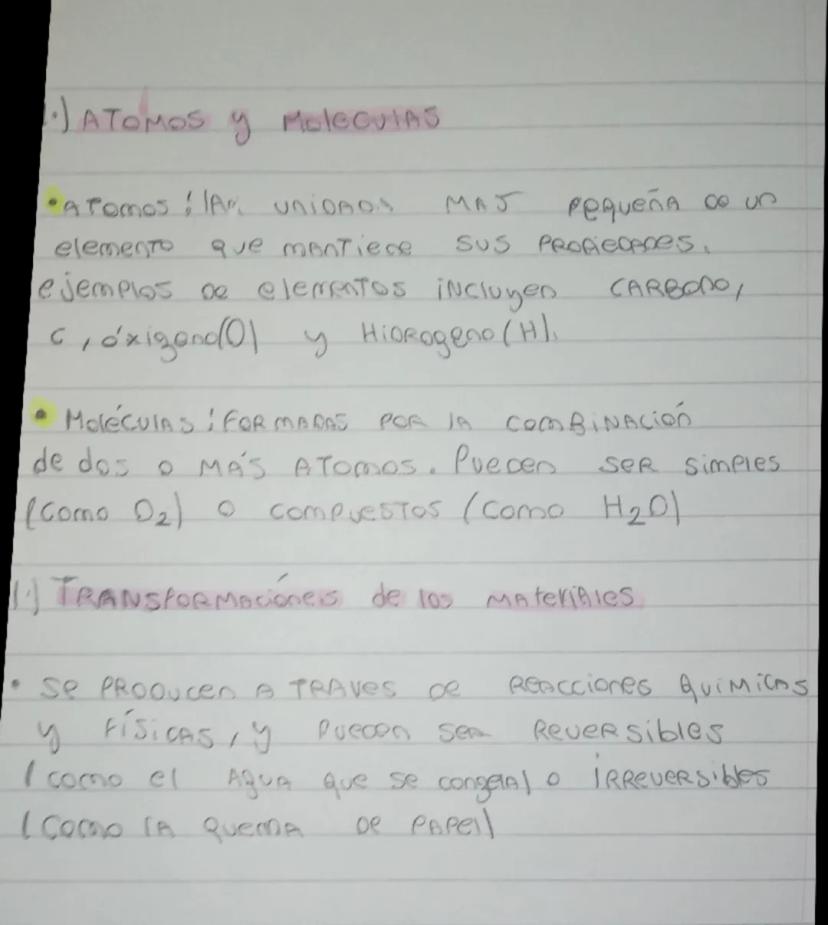 1.) ATOMOS y MOLECULAS
• ATOMOS: LA UNIDAD MAS PEQUEÑA DE UN
elemento que mantiece SUS PROPIEDADES.
ejemplos DE elementos incluyen CARBONO,
C, óxigeno(O) y HIDROGENO (H).
• MOLÉCULAS: FORMADAS POR LA COMBINACIÓN
de dos o MÁS ATOMOS. PUEDEN SER SIMPLES
(como O₂) o COMPUESTOS (como H₂O)
1.) TRANSFORMACIÓNES de los MATERIALES
• SE PRODUCEN A TRAVES DE REACCIONES QUIMICAS
y FÍSICAS, y PUEDEN SER REVERSIBLES
(como el AGUA que se congela) o IRREVERSIBLES
(COMO LA QUEMA DE PAPEL)